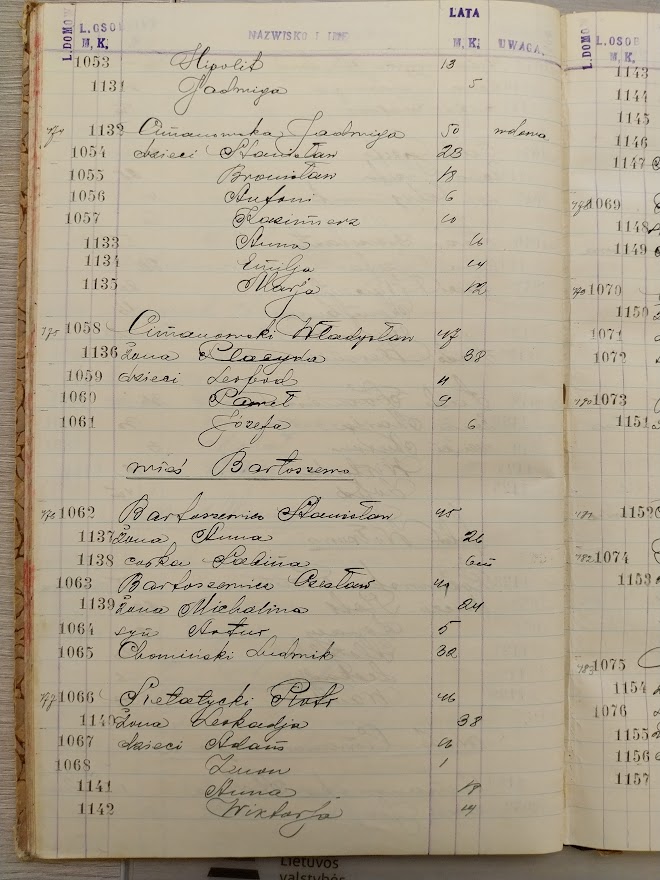 L. DOMOW L. OSOB NAZWISKO I IMIĘ LATA UWAGA.
M. K. M. K.
1053 Hipolit 13
1131 Jadwiga 5
1132 Jadwiga 50 wdowa
1054 dzieci Stanisław 23
1055 Bronisław 18
1056 Antoni 6
1057 Kazimierz
1133 Anna 16
1134 Emilja 14
1135 Marja 12
1058 Władysław 47
1136 żona 38
1059 dzieci
1060 Paweł 9
1061 Józefa 6
wieś Bartoszewo
1062 Bartoszewicz Stanisław 45
1137 żona Anna 26
1138 córka Sabina
1063 Bartoszewicz Czesław
1139 żona Michalina 24
1064 syn Artur 5
1065 Chomiński Ludwik 32
1066 Piotr 46
1140 żona Leokadja 38
1067 dzieci Adam
1068 1
1141 Anna 18
1142 Wiktorja 14
L. DOMOW L. OSOB
M. K.
1143
1144
1145
1146
1147
1069
1148
1149
1070
1150
1071
1072
1073
1151
1152
1074
1153
1075
1154
1076
1155
1156
1157
Lietuvos
valstybės